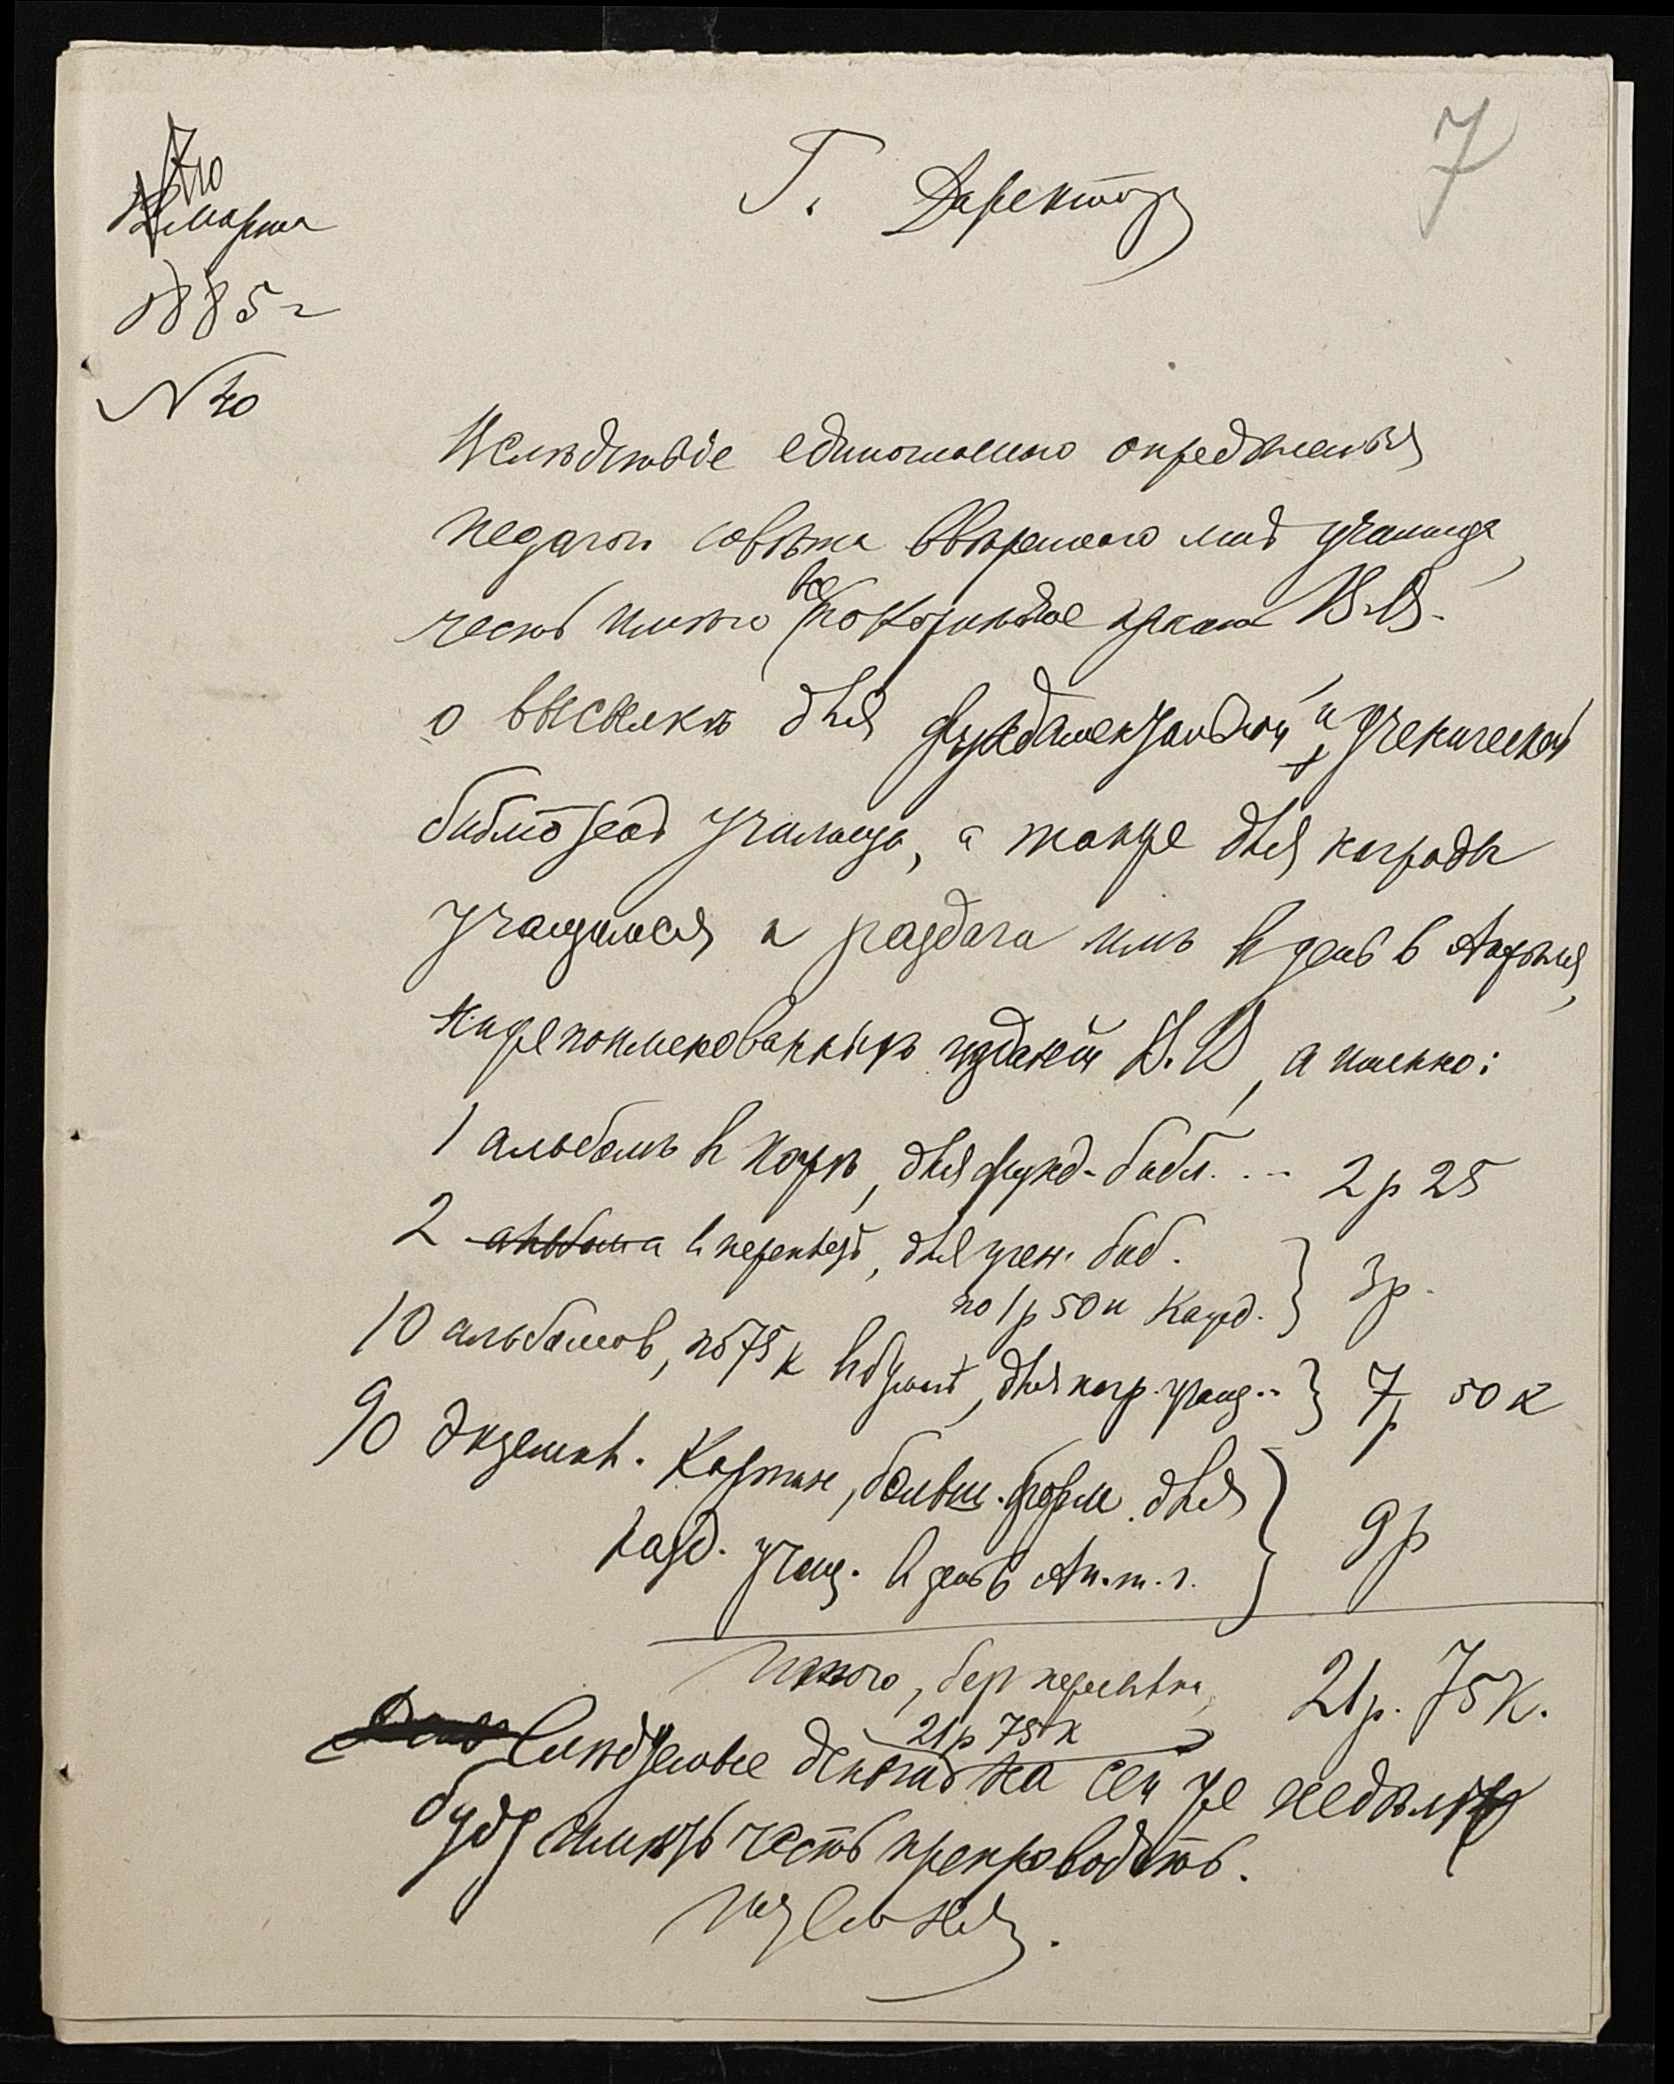 7
Г. Директору
7го
марта
1885 г
N 40
Вследствіе единогласнаго определенія
педагог. совѣта ввѣреннаго мнѣ училища,
честь имѣю все покорнѣйше просить В. В.
о высылкѣ для фундаментальной и ученической
библіотекъ училища, а также для награды
учащимся и раздачи имъ в день 6 Апрѣля,
нижепоименованныхъ изданій В. В, а именно:
1 альбомъ в кор., для фунд. библ. ... 2 р 25
2 альбома в переплетѣ, для учен. биб.
по 1 р 50 к кажд. } 3 р.
10 альбомов, по 75 к в бумагѣ, для нагр. учащ. } 7 р 50 к
90 экземпл. Картин, больш. форм. для
разд. учащ. в день 6 Ап. т. г. } 9 р
Итого, без пересылки, 21 р. 75 к.
Следуемые деньги 21 р 75 к на сей же недѣлѣ
буду имѣть честь препроводить.